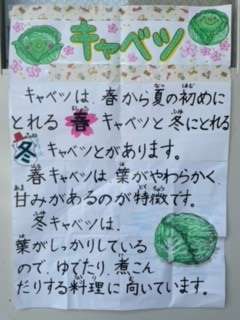 キャベツ
キャベツは 春から夏の初めに
とれる 春 キャベツと冬にとれる
冬 キャベツとがあります。
春キャベツは 葉がやわらかく、
甘みがあるのが特徴です。
冬キャベツは、
葉がしっかりしている
ので、ゆでたり、煮こん
だりする料理に向いています。